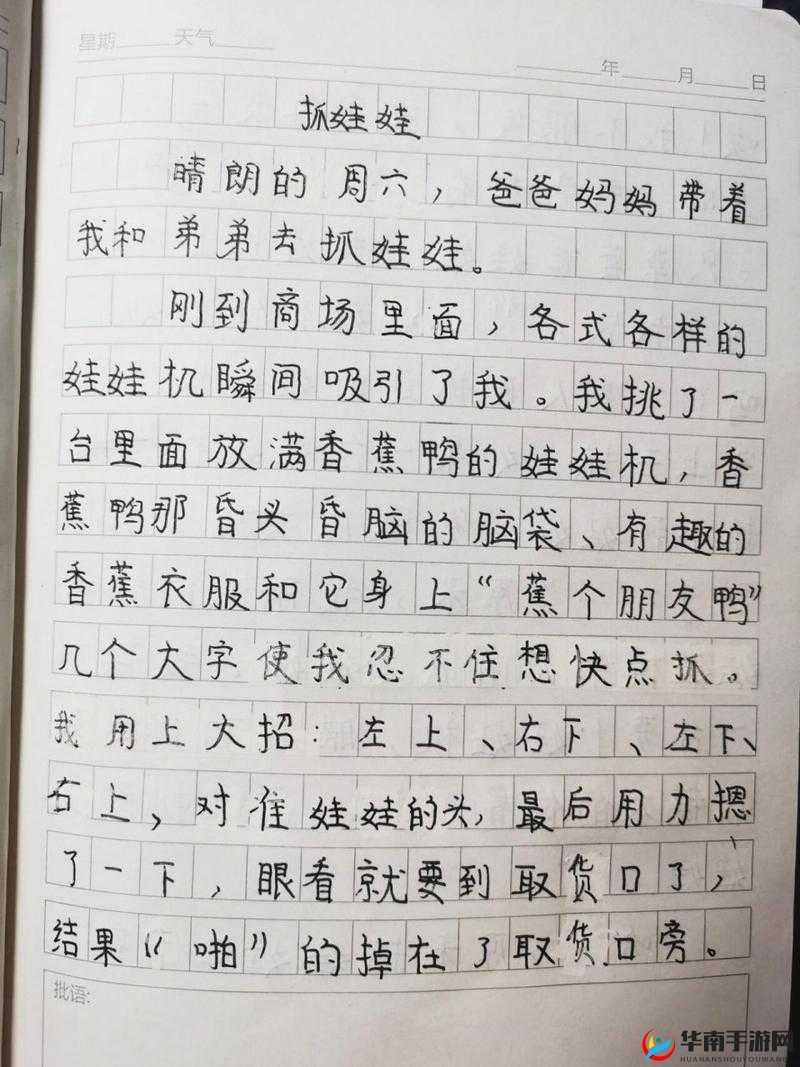 星期 天气
年 月 日
抓娃娃
晴朗的周六，爸爸妈妈带着
我和弟弟去抓娃娃。
刚到商场里面，各式各样的
娃娃机瞬间吸引了我。我挑了一
台里面放满香蕉鸭的娃娃机，香
蕉鸭那昏头昏脑的脑袋、有趣的
香蕉衣服和它身上“蕉个朋友鸭”
几个大字使我忍不住想快点抓。
我用上大招：左上、右下、左下、
右上，对准娃娃的头，最后用力摁
了一下，眼看就要到取货口了，
结果“啪”的掉在了取货口旁。
批语:
华南手游网
HUANANSHOUYOUWANG